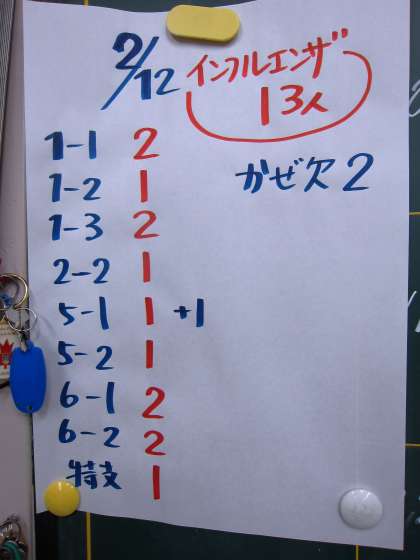 2/12 インフルエンザ
13人
かぜ欠 2
1-1 2
1-2 1
1-3 2
2-2 1
5-1 1 +1
5-2 1
6-1 2
6-2 2
特支 1